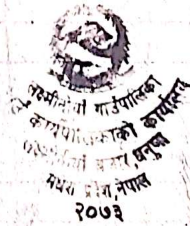 लक्ष्मीनियाँ गाउँपालिका
कार्यपालिकाको कार्यालय
धनुषा
मधेश प्रदेश, नेपाल
२०७३